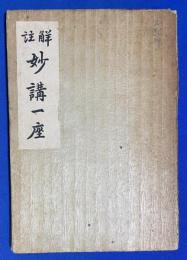 註解
妙講一座